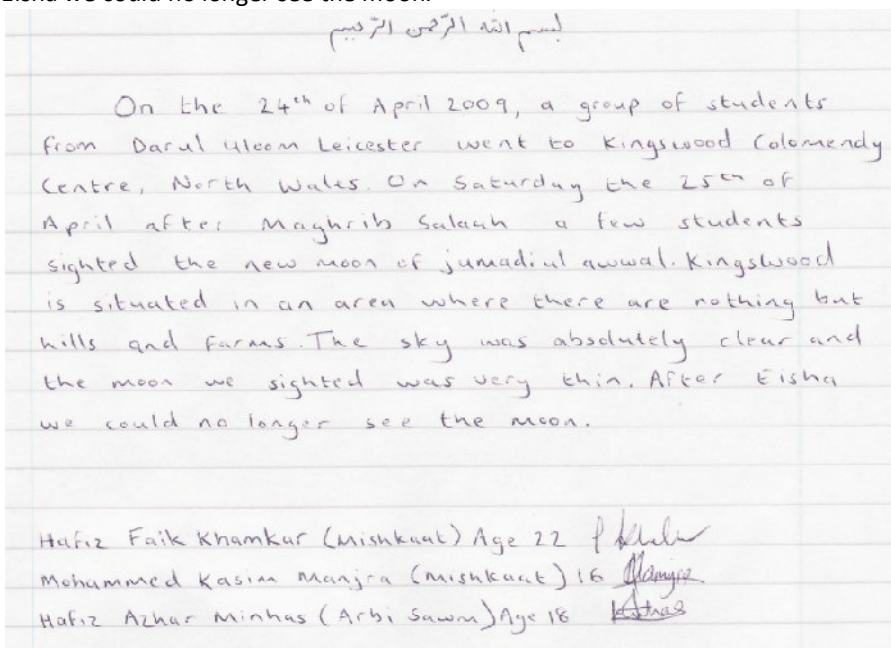 Eisha we could no longer see the moon.
بسم الله الرحمن الرحيم
On the 24th of April 2009, a group of students
from Darul Uloom Leicester went to Kingswood Colomendy
Centre, North Wales. On Saturday the 25th of
April after Maghrib Salaah a few students
sighted the new moon of jumadiul awwal. Kingswood
is situated in an area where there are nothing but
hills and farms. The sky was absolutely clear and
the moon we sighted was very thin. After Eisha
we could no longer see the moon.
Hafiz Faik Khamkar (Mishkaat) Age 22
Mohammed Kasim Manjra (Mishkaat) 16 Manjra
Hafiz Azhar Minhas (Arbi Sawm) Age 18